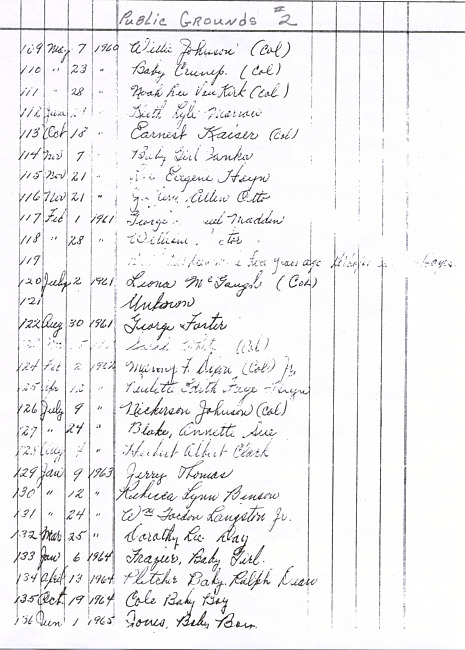 Public Grounds #2
109 May 7 1960 Willie Johnson (Col)
110 " 23 " Baby Crump. (Col)
111 " 28 " Noah Lee Van Kirk (Col)
112 June " Keith Lyle
113 Oct 18 " Earnest Kaiser (Col)
114 Nov 7 " Baby Girl
115 Nov 21 " Eugene Hayn
116 Nov 21 " Allen Otto
117 Feb 1 1961 George Madden
118 " 28 " William
119 a few years ago
120 July 2 1961 Leona McGaugh (Col)
121 Unknown
122 Aug 30 1961 George Foster
Sarah (Col)
124 Feb 2 1962 Manny F. Dean (Col) Jr
125 Apr 12 " Paulette Edith Faye Hayn
126 July 9 " Nickerson Johnson (Col)
127 " 24 " Blake, Annette Sue
128 Aug 7 " Herbert Albert Clark
129 Jan 9 1963 Jerry Thomas
130 " 12 " Rebecca Lynn Benson
131 " 24 " Wm Gordon Langston Jr.
132 Mar 25 " Dorothy Lee Day
133 Jan 6 1964 Frazier, Baby Girl.
134 April 13 1964 Pletcher Baby, Ralph Dean
135 Oct. 19 1964 Cole Baby Boy
136 Jun 1 1965 Jones, Baby Born